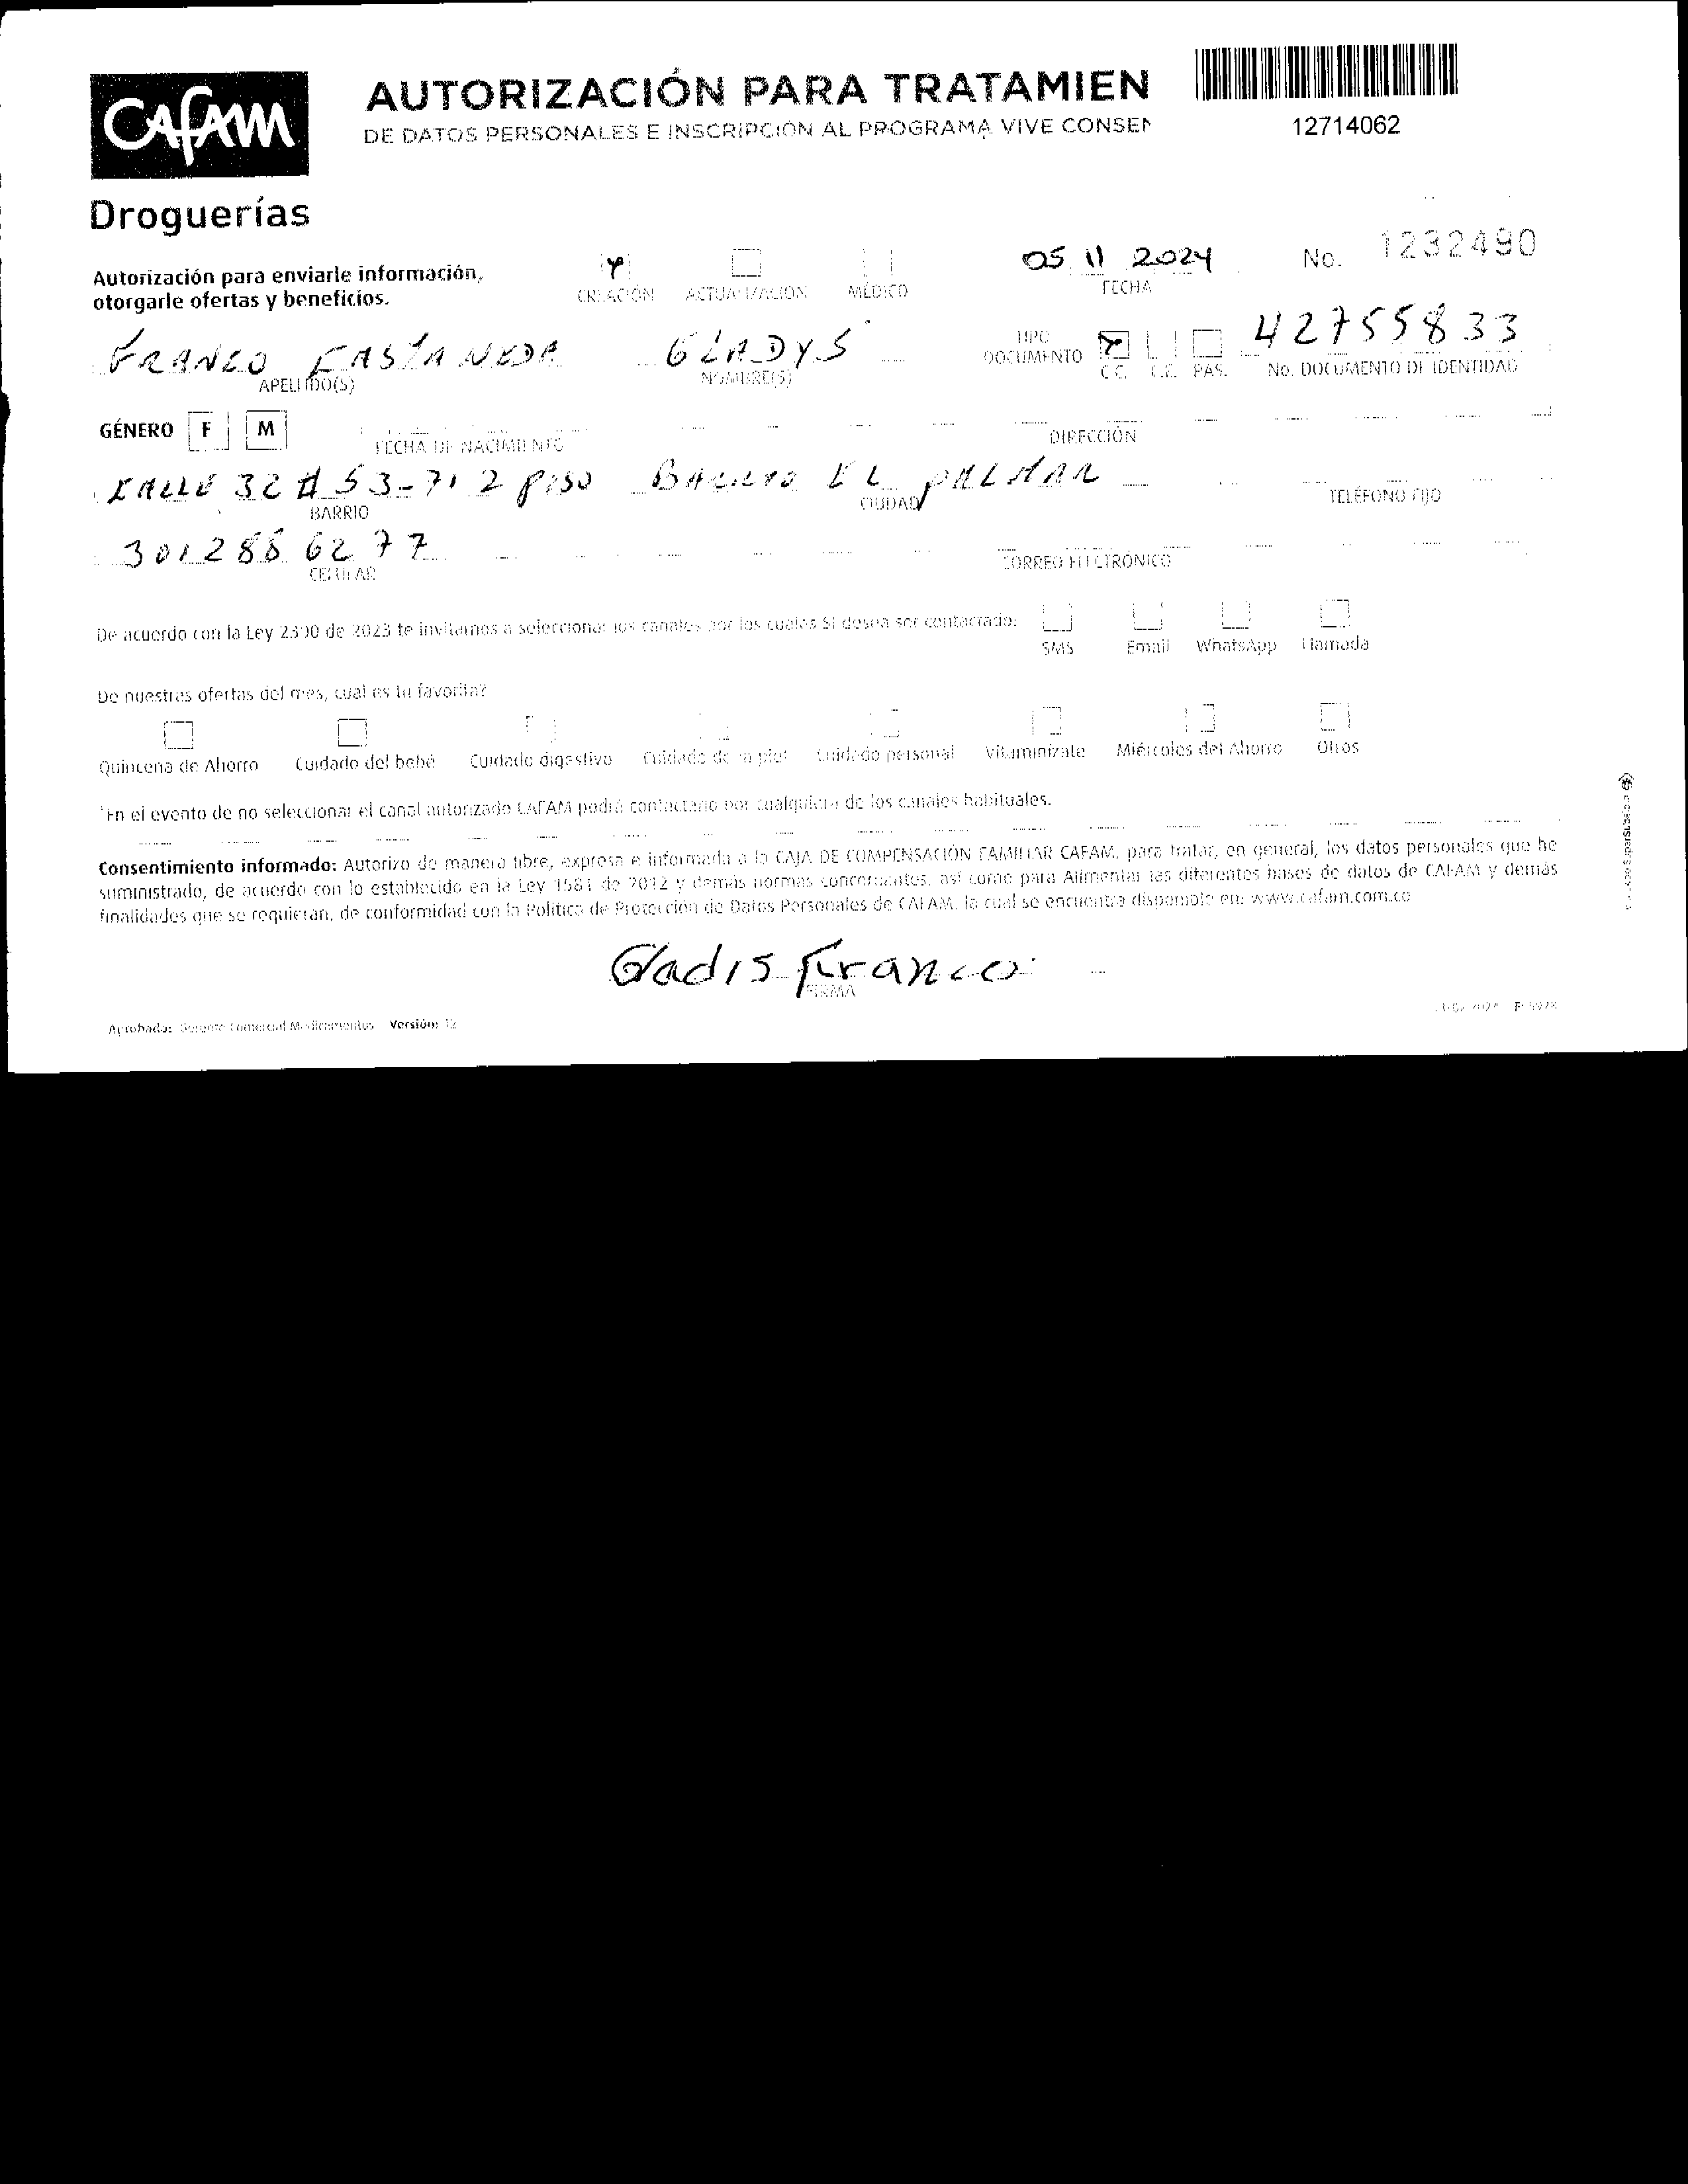 CAFAM
AUTORIZACIÓN PARA TRATAMIEN
DE DATOS PERSONALES E INSCRIPCIÓN AL PROGRAMA VIVE CONSEN
12714062
Droguerías
Autorización para enviarle información,
otorgarle ofertas y beneficios.
CREACIÓN ACTUALIZACIÓN MÉDICO
05 11 2024
FECHA
No. 1232490
FRANCO CASTANEDA GLADYS
APELLIDO(S) NOMBRE(S)
TIPO
DOCUMENTO
C.C. C.E. PAS.
42755833
No. DOCUMENTO DE IDENTIDAD
GÉNERO F M
FECHA DE NACIMIENTO DIRECCIÓN
CALLE 32 # 53-71 2 PISO BARRIO EL PALMAR
BARRIO CIUDAD TELÉFONO FIJO
301288 6277
CELULAR CORREO ELECTRÓNICO
De acuerdo con la Ley 2300 de 2023 te invitamos a seleccionar los canales por los cuales SI desea ser contactado:
SMS Email WhatsApp Llamada
De nuestras ofertas del mes, cual es tu favorita?
Quincena de Ahorro Cuidado del bebé Cuidado digestivo Cuidado de la piel Cuidado personal Vitaminízate Miércoles del Ahorro Otros
*En el evento de no seleccionar el canal autorizado CAFAM podrá contactarlo por cualquiera de los canales habituales.
Consentimiento informado: Autorizo de manera libre, expresa e informada a la CAJA DE COMPENSACIÓN FAMILIAR CAFAM, para tratar, en general, los datos personales que he
suministrado, de acuerdo con lo establecido en la Ley 1581 de 2012 y demás normas concordantes, así como para Alimentar las diferentes bases de datos de CAFAM y demás
finalidades que se requieran, de conformidad con la Política de Protección de Datos Personales de CAFAM, la cual se encuentra disponible en: www.cafam.com.co
Gladis Franco
FIRMA
Aprobada: Gerente Comercial Medicamentos Versión: 12